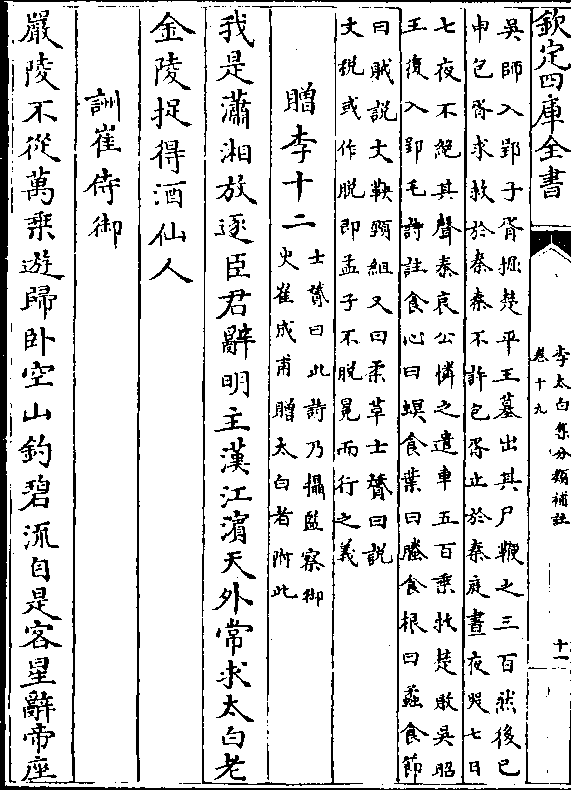 欽定四庫全書
李太白集分類補註
卷十九
十一
吳師入郢子胥掘楚平王墓出其尸鞭之三百然後已
申包胥求救於秦秦不許包胥止於秦庭晝夜哭七日
七夜不絕其聲秦哀公憐之遣車五百乗救楚敗吳昭
王復入郢毛詩註食心曰螟食葉曰螣食根曰蟊食節
曰賊説文鞅頸組又曰柔革士贇曰説
文税或作脱即孟子不脱冕而行之義
贈李十二
士贇曰此詩乃攝監察御
史崔成甫贈太白者附此
我是瀟湘放逐臣君辭明主漢江濵天外常求太白老
金陵捉得酒仙人
詶崔侍御
嚴陵不從萬乗遊歸卧空山釣碧流自是客星辭帝座